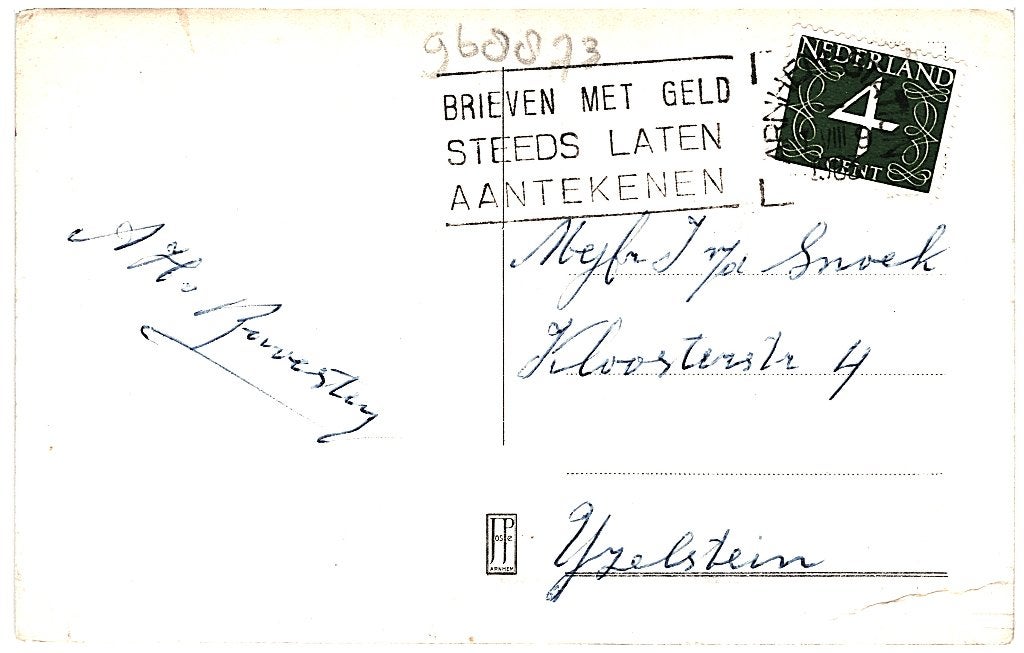 960873
BRIEVEN MET GELD
STEEDS LATEN
AANTEKENEN
NEDERLAND
4
CENT
ARNHEM
VIII
A H.
Mejfr J v/d Snoek
Kloosterstr 4
Yzelstein
JP
ARNHEM